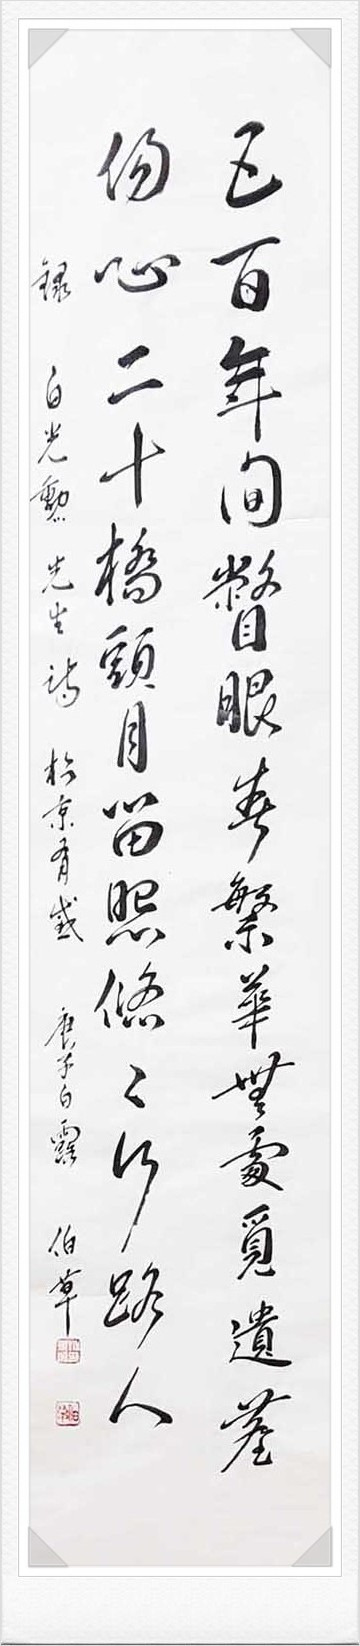 五百年間瞥眼春繁華無處覓遺塵
傷心二十橋頭月留照悠〻行路人
錄 白光勳先生詩 松京有感 庚子白露 伯草